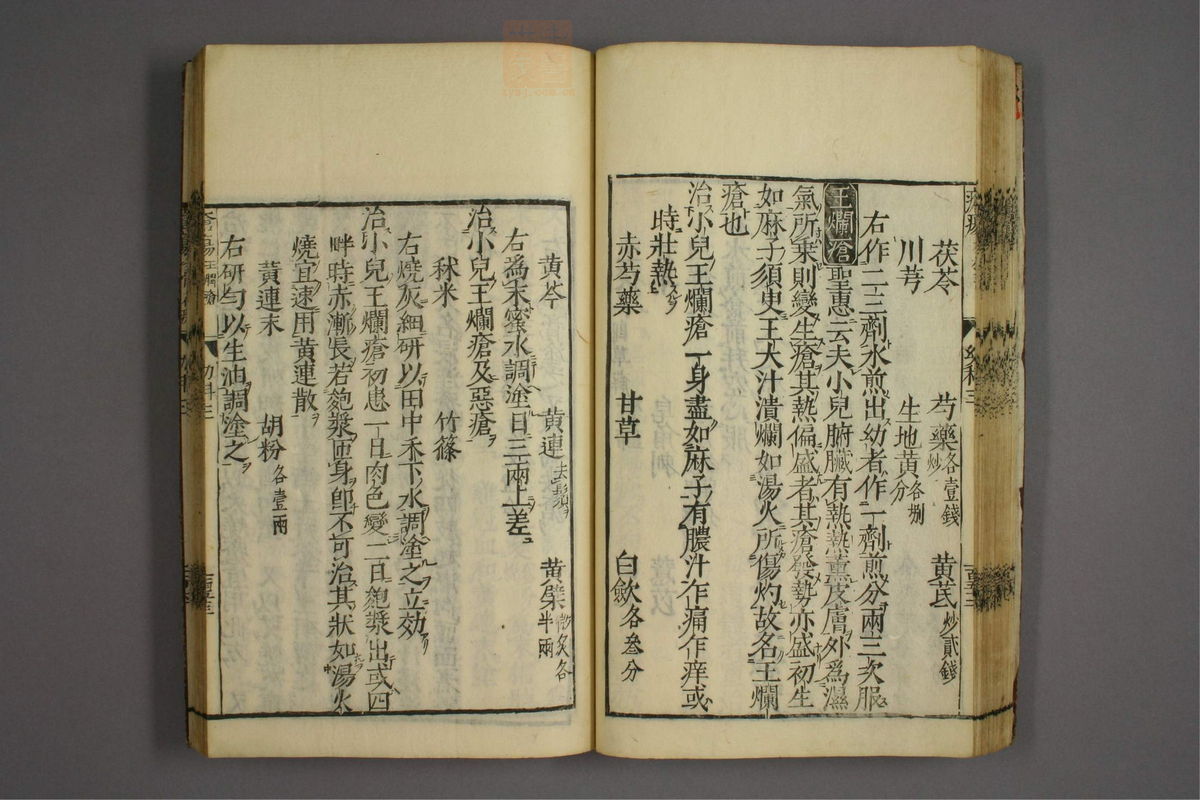 茯苓 芍藥各壹錢炒 黄芪炒貳錢
川芎 生地黄各捌分
右作二三劑水煎出幼者作一劑煎分兩三次服
王爛瘡 聖惠云夫小兒腑臟有熱熱薰皮膚外爲濕
氣所乗則變生瘡其熱偏盛者其瘡發勢亦盛初生
如麻子須臾王大汁潰爛如湯火所傷灼故名王爛
瘡也
治小兒王爛瘡一身盡如麻子有膿汁乍痛乍痒或
時壯熱
赤芍藥 甘草 白歛各叄分
黄芩 黄連去鬚 黄蘗微炙各半兩
右為末蜜水調塗日三兩上差
治小兒王爛瘡及惡瘡
秫米 竹篠
右燒灰細研以田中禾下水調塗之立効
治小兒王爛瘡初患一日肉色變二日皰漿出或四
畔時赤漸長若皰漿匝身即不可治其狀如湯火
燒宜速用黄連散
黄連末 胡粉各壹兩
右研勻以生油調塗之
幼科三